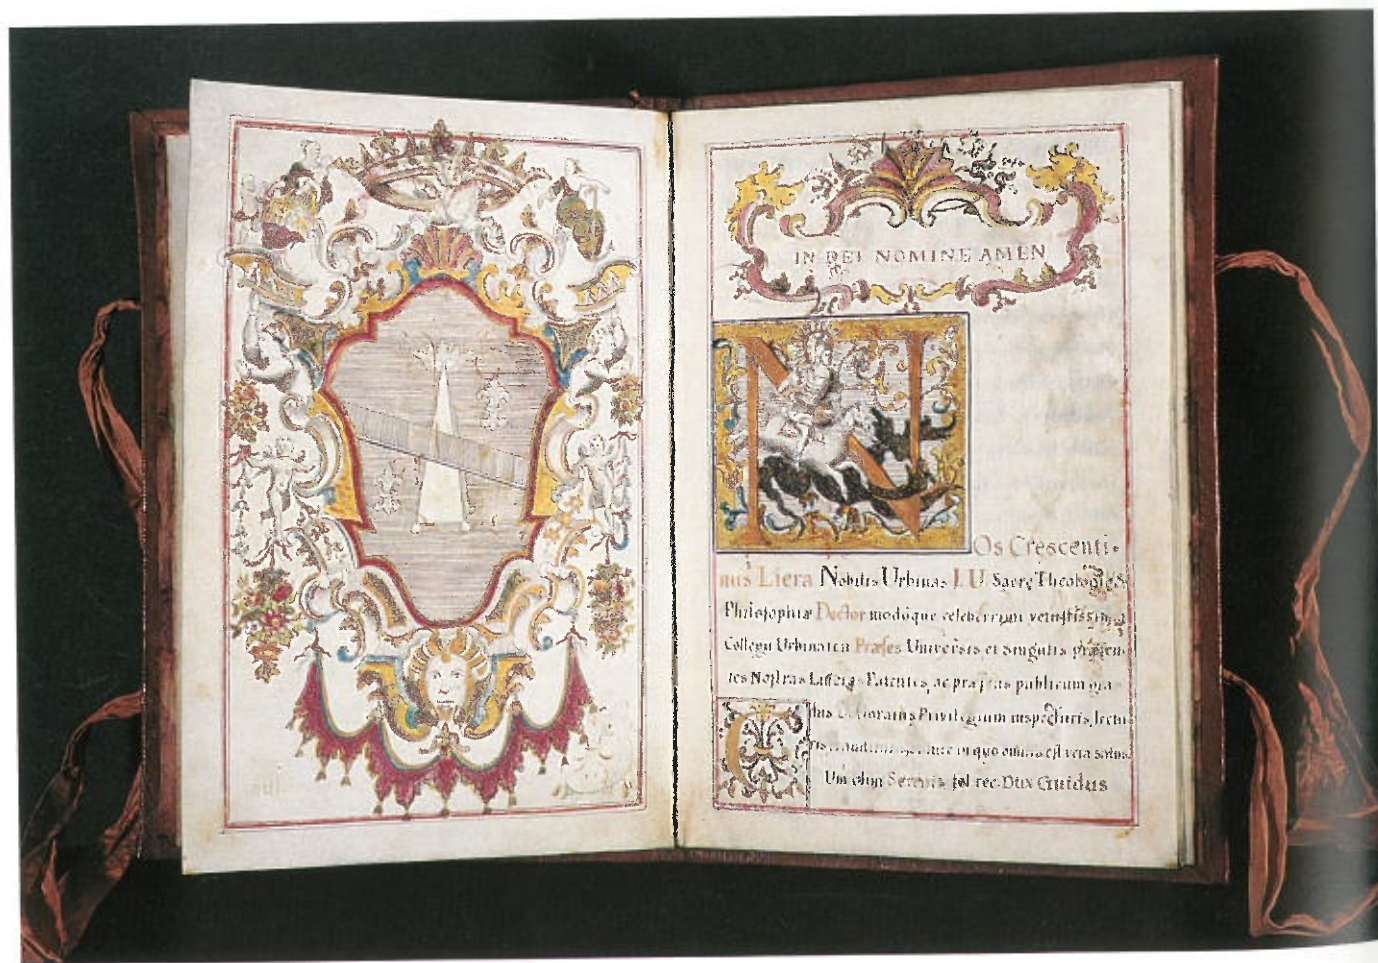 IN DEI NOMINE AMEN
NOs Crescenti-
nus Liera Nobilis Urbinas I.U. Sacrę Theologię &
Philosophiæ Doctor modóque celeberrimi vetustissimi
Collegii Urbinatis Præses Universis et singulis præsen
tes Nostras Litteras Patentes, ac
publicum
Privilegium inspecturis, lectu
ris in quo omnis est vera salus
Cum olim Serenis. fel. rec. Dux Guidus